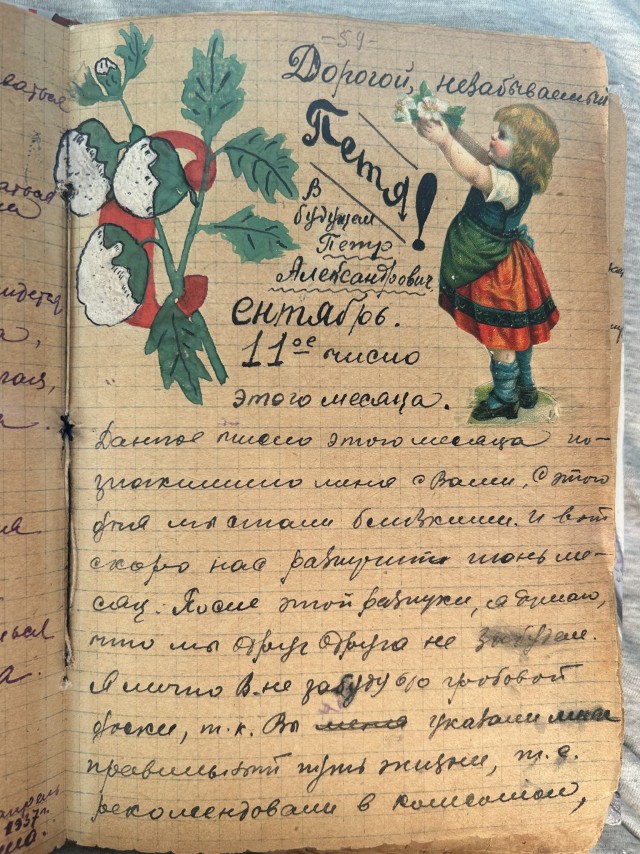 -59-
Дорогой, незабываемый
Петя!
В
будущем
Петр
Александрович
Сентябрь.
11ое число
этого месяца.
Данное число этого месяца по-
знакомило меня с Вами. С этого
дня мы стали близкими. И вот
скоро нас разлучит июнь ме-
сяц. После этой разлуки, я думаю,
что мы друг друга не забудем.
Я лично В. не забуду до гробовой
доски, т.к. Вы меня указали мне
правильный путь жизни, т.е.
рекомендовали в комсомол,
аться
аться
идется
а,
ться
а.
апрель
1937 г.